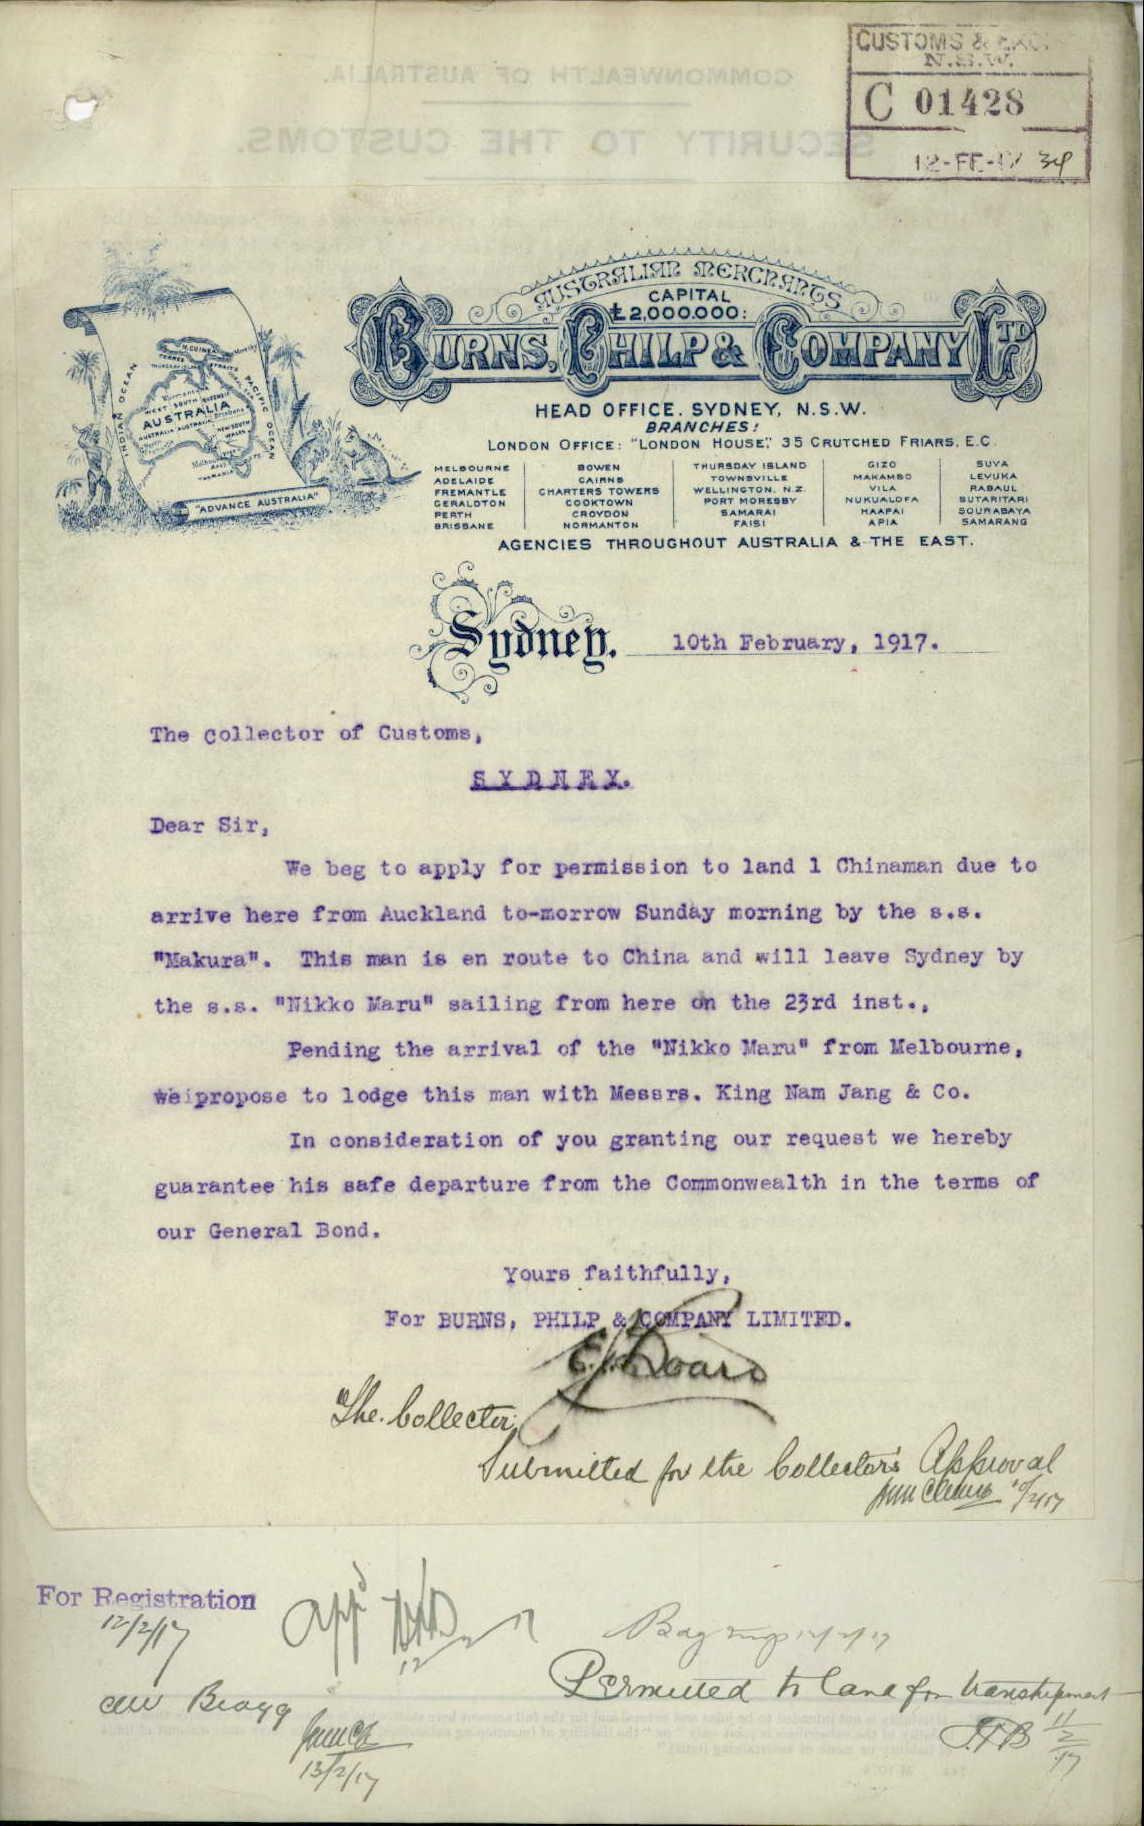 CUSTOMS & EXC
N.S.W.
C 01428
12-FE-17 34
COMMONWEALTH OF AUSTRALIA.
SECURITY TO THE CUSTOMS.
AUSTRALIAN MERCHANTS
CAPITAL
£2,000.000:
BURNS, PHILP & COMPANY LTD
HEAD OFFICE. SYDNEY, N.S.W.
BRANCHES:
LONDON OFFICE: "LONDON HOUSE", 35 CRUTCHED FRIARS, E.C.
MELBOURNE
ADELAIDE
FREMANTLE
GERALDTON
PERTH
BRISBANE
BOWEN
CAIRNS
CHARTERS TOWERS
COOKTOWN
CROYDON
NORMANTON
THURSDAY ISLAND
TOWNSVILLE
WELLINGTON, N.Z.
PORT MORESBY
SAMARAI
FAISI
GIZO
MAKAMBO
VILA
NUKUALOFA
HAAPAI
APIA
SUVA
LEVUKA
RABAUL
BUTARITARI
SOURABAYA
SAMARANG
AGENCIES THROUGHOUT AUSTRALIA & THE EAST.
INDIAN OCEAN
PACIFIC OCEAN
AUSTRALIA
"ADVANCE AUSTRALIA"
Sydney. 10th February, 1917.
The Collector of Customs,
SYDNEY.
Dear Sir,
We beg to apply for permission to land 1 Chinaman due to
arrive here from Auckland to-morrow Sunday morning by the s.s.
"Makura". This man is en route to China and will leave Sydney by
the s.s. "Nikko Maru" sailing from here on the 23rd inst.,
Pending the arrival of the "Nikko Maru" from Melbourne,
we propose to lodge this man with Messrs. King Nam Jang & Co.
In consideration of you granting our request we hereby
guarantee his safe departure from the Commonwealth in the terms of
our General Bond.
Yours faithfully,
For BURNS, PHILP & COMPANY LIMITED.
The Collector,
Submitted for the Collector's Approval
10/2/17
For Registration
12/2/17
Appd
12 2 17
12/2/17
Permitted to land for transhipment
JTB 11/2/17
Bragg
13/2/17